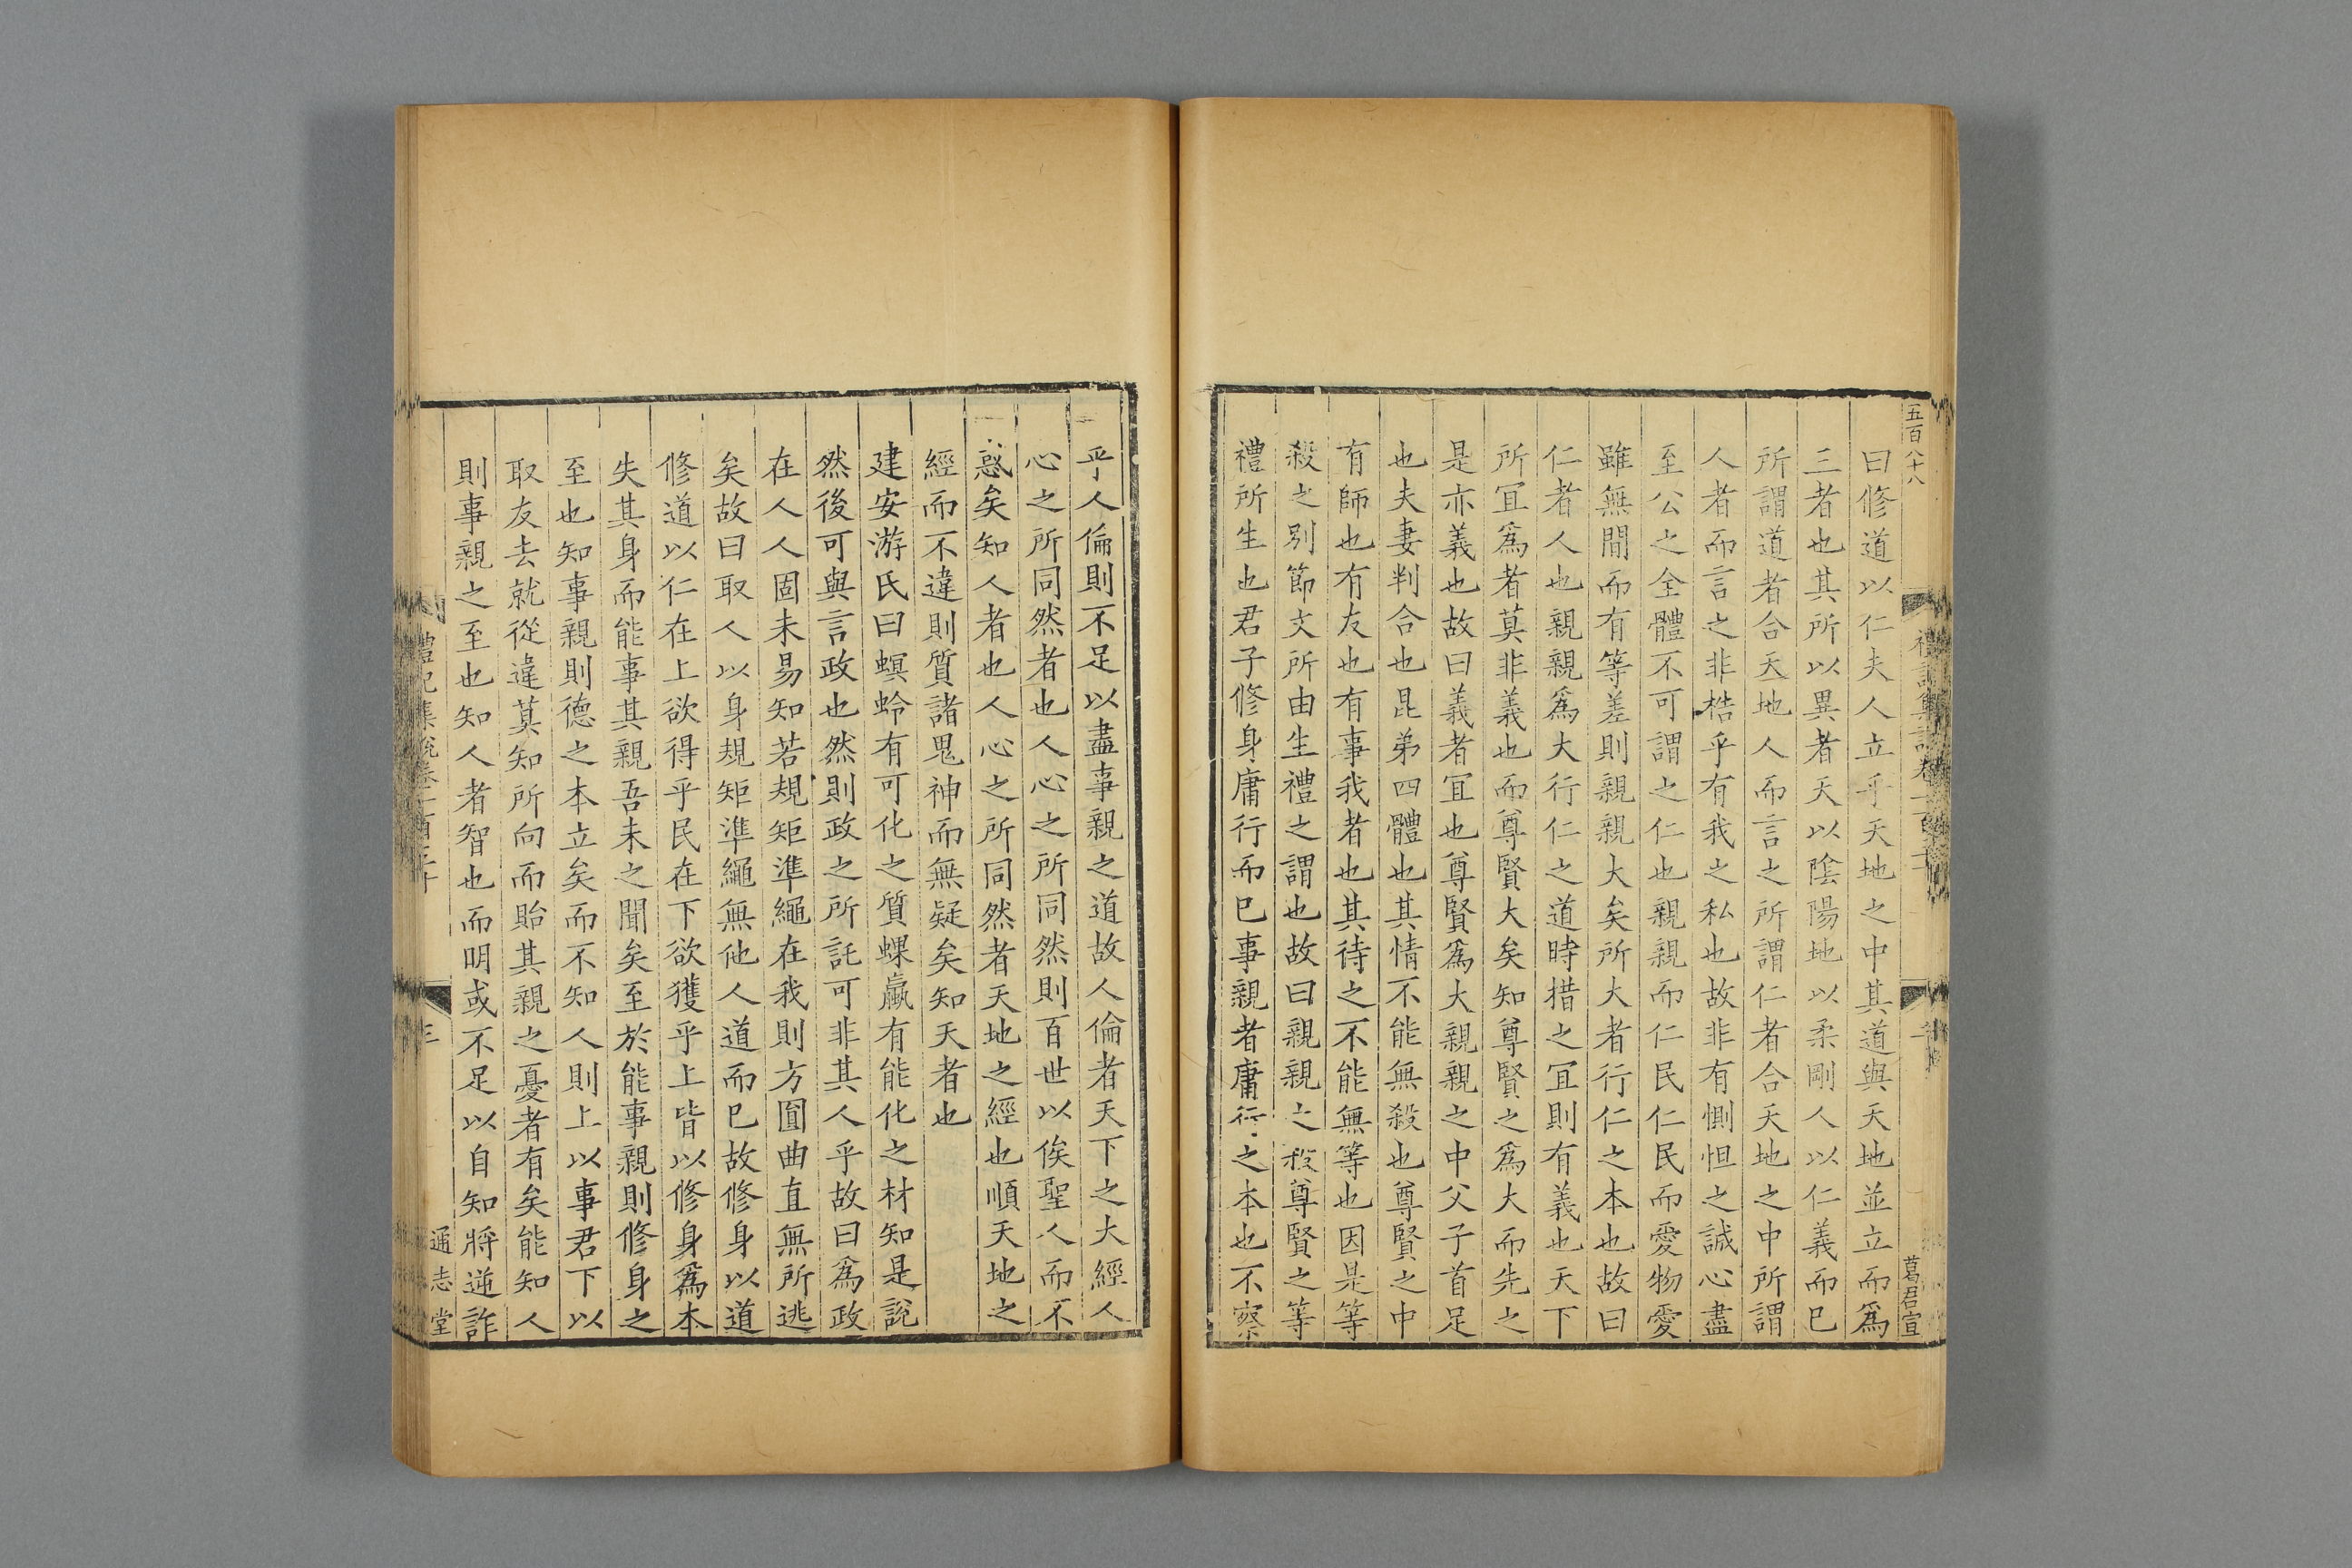 五百八十八
曰修道以仁夫人立乎天地之中其道與天地並立而爲
三者也其所以異者天以陰陽地以柔剛人以仁義而已
所謂道者合天地人而言之所謂仁者合天地之中所謂
人者而言之非梏乎有我之私也故非有惻怛之誠心盡
至公之全體不可謂之仁也親親而仁民仁民而愛物愛
雖無間而有等差則親親大矣所大者行仁之本也故曰
仁者人也親親爲大行仁之道時措之宜則有義也天下
所宜爲者莫非義也而尊賢大矣知尊賢之爲大而先之
是亦義也故曰義者宜也尊賢爲大親親之中父子首足
也夫妻判合也昆弟四體也其情不能無殺也尊賢之中
有師也有友也有事我者也其待之不能無等也因是等
殺之別節文所由生禮之謂也故曰親親之殺尊賢之等
禮所生也君子修身庸行而已事親者庸行之本也不察
葛君宣
乎人倫則不足以盡事親之道故人倫者天下之大經人
心之所同然者也人心之所同然則百世以俟聖人而不
惑矣知人者也人心之所同然者天地之經也順天地之
經而不違則質諸鬼神而無疑矣知天者也
建安游氏曰螟蛉有可化之質蜾蠃有能化之材知是說
然後可與言政也然則政之所託可非其人乎故曰爲政
在人人固未易知若規矩準繩在我則方圓曲直無所逃
矣故曰取人以身規矩準繩無他人道而已故修身以道
修道以仁在上欲得乎民在下欲獲乎上皆以修身爲本
失其身而能事其親吾未之聞矣至於能事親則修身之
至也知事親則德之本立矣而不知人則上以事君下以
取友去就從違莫知所向而貽其親之憂者有矣能知人
則事親之至也知人者智也而明或不足以自知將逆詐
禮記集說卷一百三十
三
通志堂